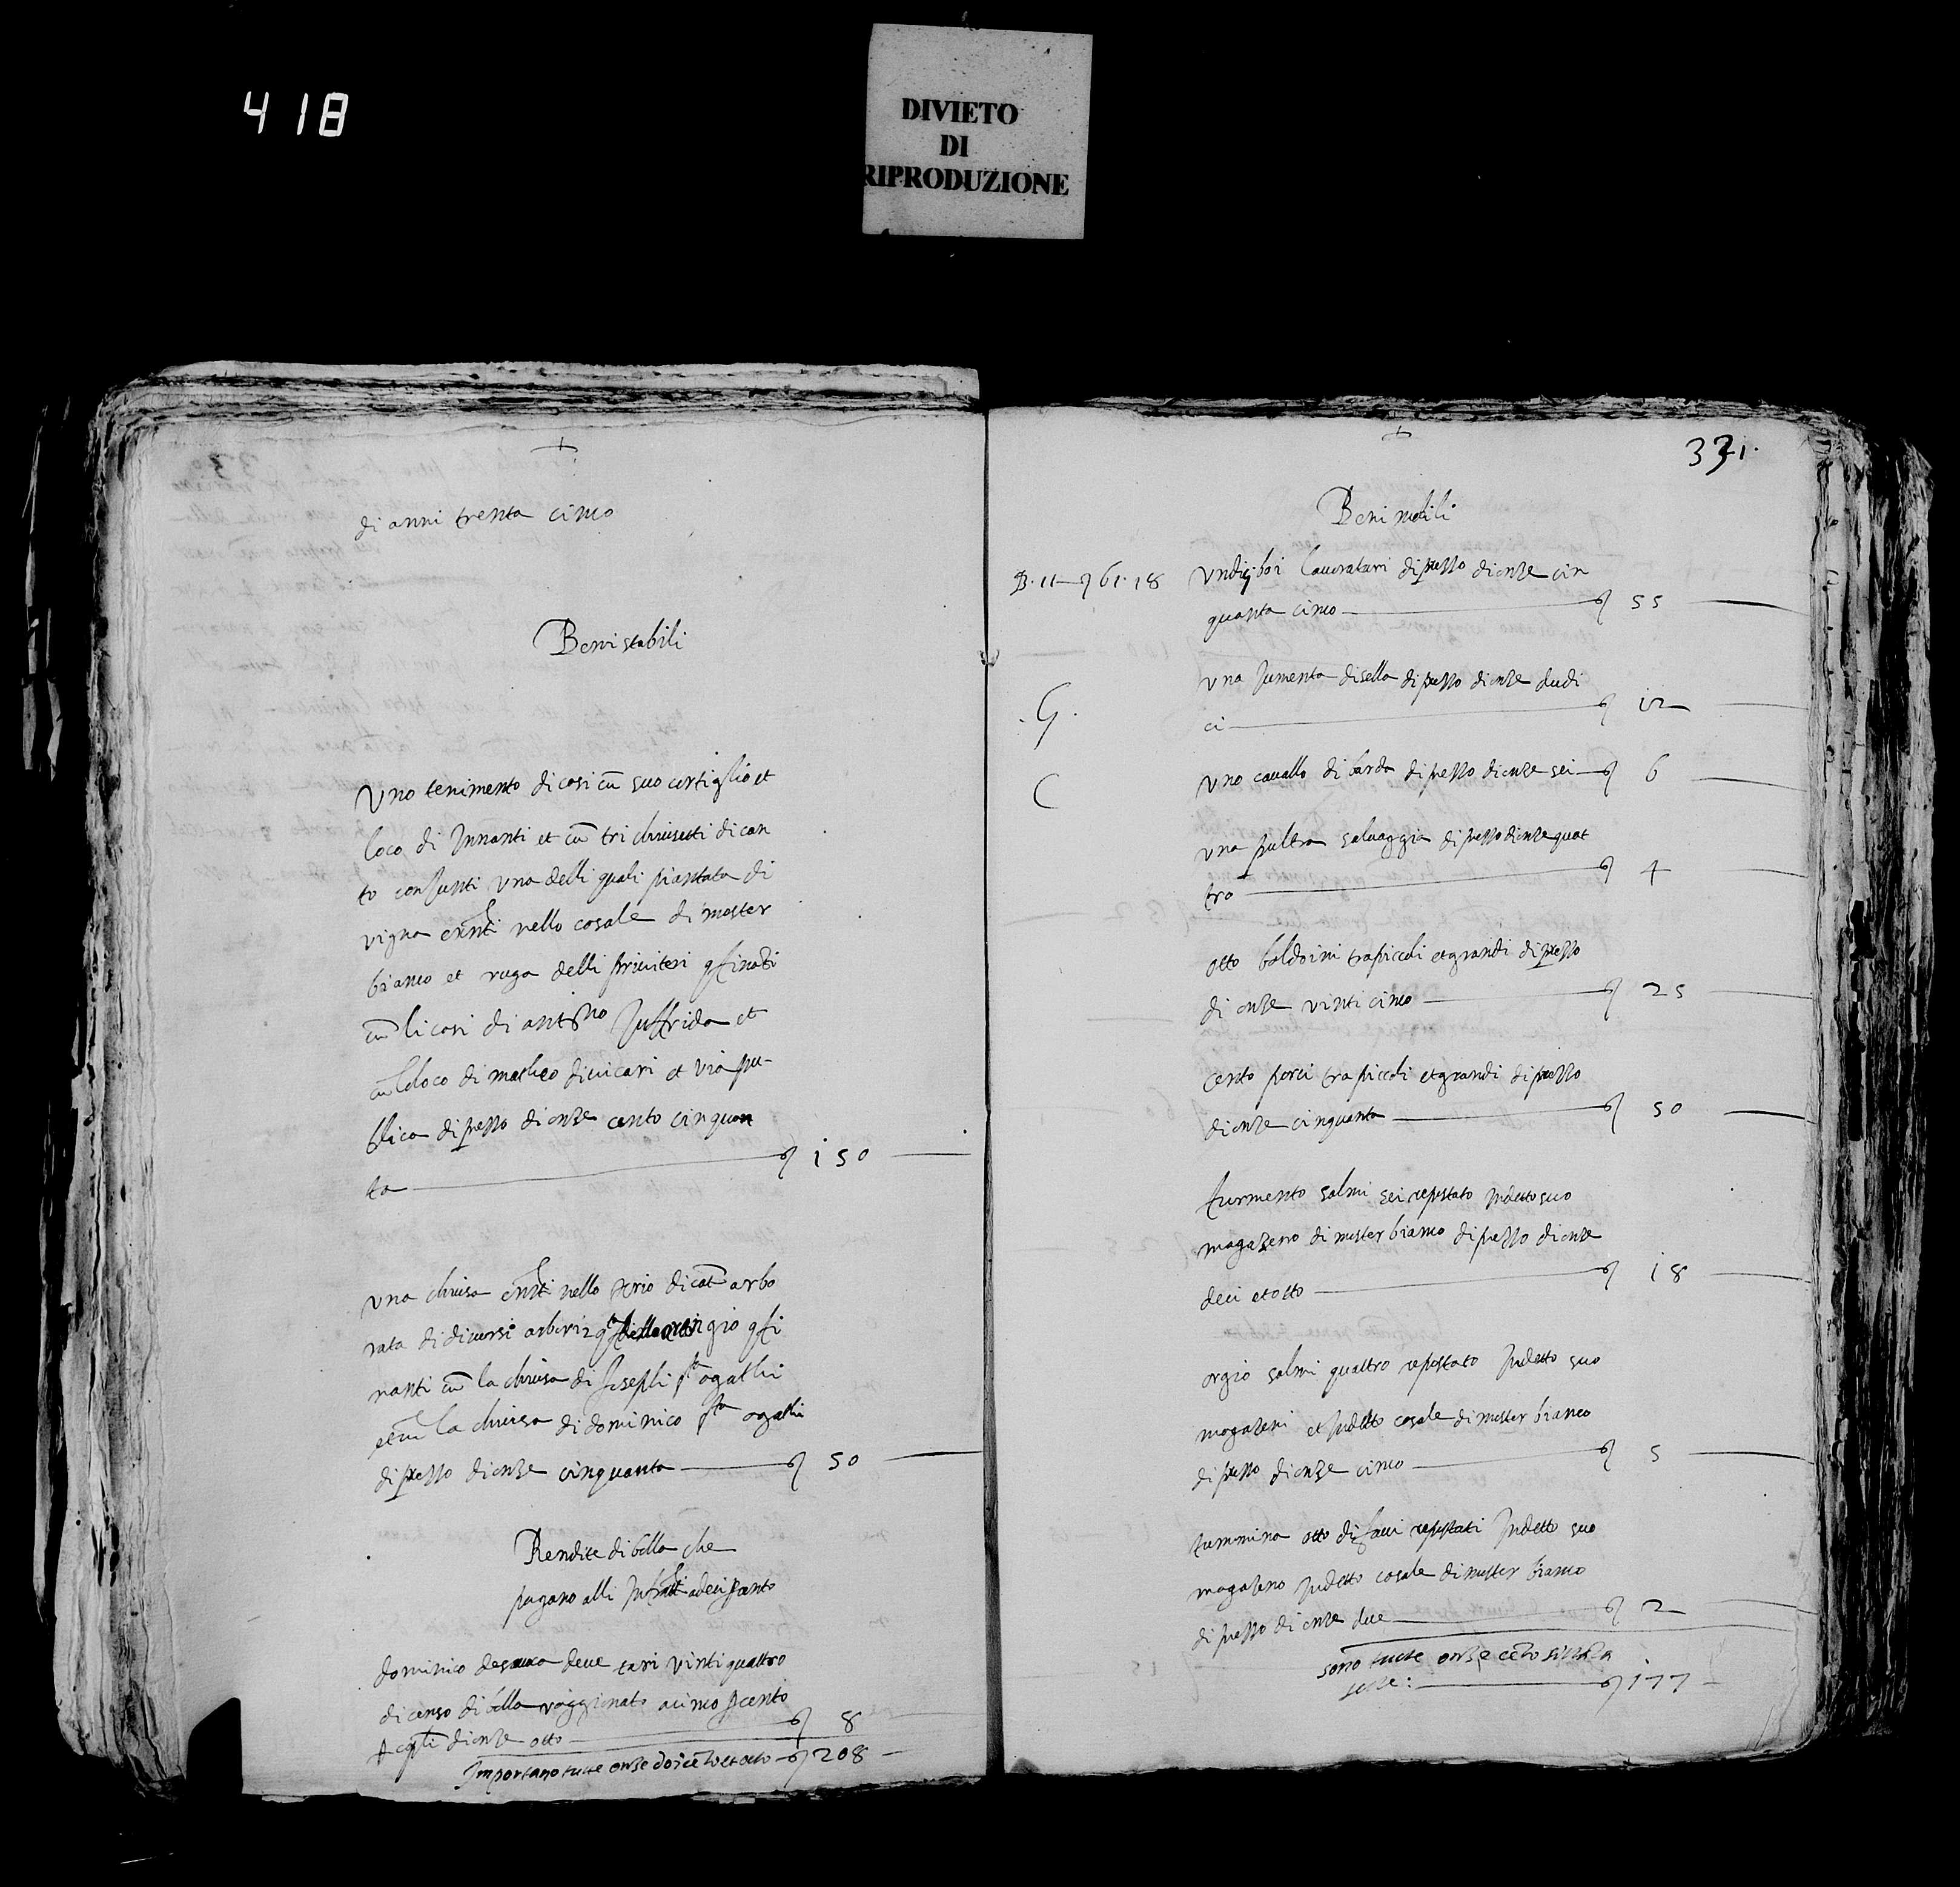 418
DIVIETO
DI
RIPRODUZIONE
di anni trenta cinco
Beni stabili
Uno tenimento di casi cu suo cortiglio et
loco di Innanti et cu tri chiusetti di can
to conjunti una delli quali piantata di
vigna nello casale di moster
bianco et ruga delli priviteri
cu li casi di Juffrida et
loco di matheo di vicari et via pu-
blica di prezzo di onze cento cinquan
ta 150
una chiusa nello di arbo
rata di diversi arbori
nanti cu la chiusa di Joseph sta agathi
la chiusa di dominico sta agathi
di prezzo di onze cinquanta 50
Rendite di bolla che
pagano alli
dominico deve tari vinti quattro
di censo di bolla raggionato a cinco cento
di onze otto 8
Importano tutte onze doicento et otto 208
331.
Beni mobili
B. 11 61.18
Undici boi lavoraturi di prezzo di onze cin
quanta cinco 55
.G.
una Jumenta di sella di prezzo di onze dudi
ci 12
C
uno cavallo di barda di prezzo di onze sei 6
una pultra salvaggia di prezzo di onze quat
tro 4
otto baldoini tra piccoli et grandi di prezzo
di onze vinti cinco 25
cento porci tra piccoli et grandi di prezzo
di onze cinquanta 50
furmento salmi sei repostato In detto suo
magazeno di muster bianco di prezzo di onze
deci et otto 18
orgio salmi quattro repostato In detto suo
magazeni et In detto casale di muster bianco
di prezzo di onze cinco 5
tummina otto di favi repostati In detto suo
magazeno In detto casale di muster bianco
di prezzo di onze due 2
sono tutte onze cento
sette: 177